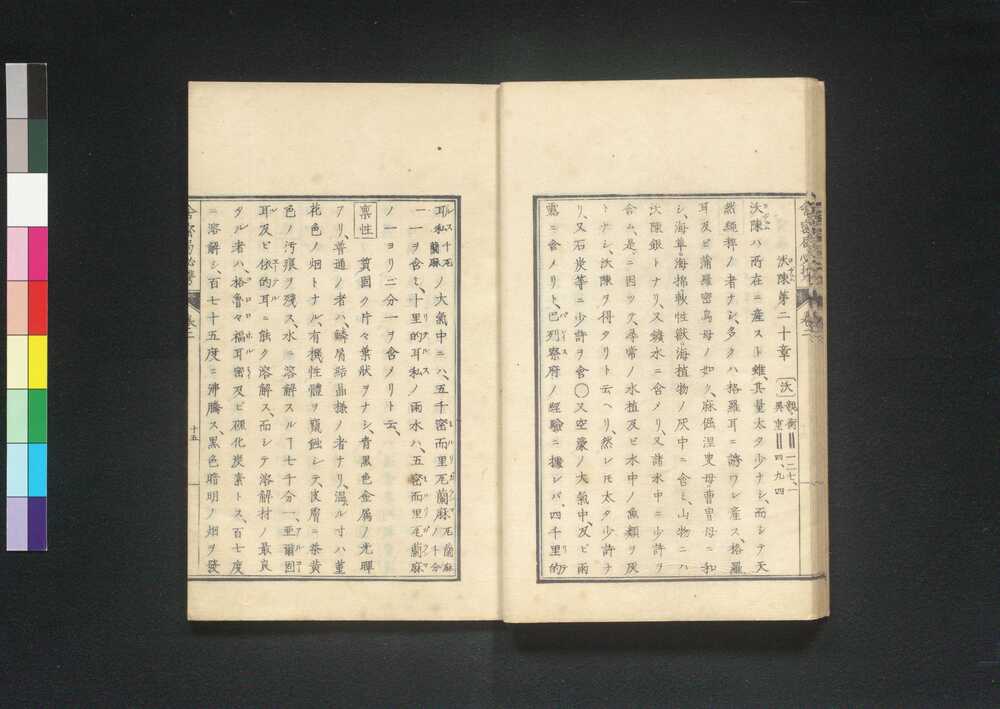 沃陳第二十章 沃 親衡‖一二七、一 異重‖四、九四
沃陳ハ所在ニ産スト雖其量太タ少ナシ、而シテ天
然純粋ノ者ナシ、多クハ格羅耳ニ諦ワレ産ス、格羅
耳及ヒ蒲羅密烏母ノ如ク、麻倔涅叟母曹冑母ニ和
シ、海草海綿軟性獣海植物ノ灰中ニ含ミ、山物ニハ
沃陳銀トナリ、又鑛水ニ含メリ、又諸水中ニ少許ヲ
含ム、是ニ因ツテ尋常ノ水植及ヒ水中ノ魚類ヲ灰
トナシ、沃陳ヲ得タリト云ヘリ、然レ𪜈太タ少許ナ
リ、又石炭等ニ少許ヲ含○又空氣ノ大氣中及ヒ雨
露ニ含メリト、巴列斯府ノ經驗ニ據レバ、四千里的
耳私ノ大氣中ニハ、五千密而里瓦蘭麻ノ十分
一一ヲ含ミ、十里的耳私ノ雨水ハ、五密而里瓦蘭麻
ノ一ヨリ二分一ヲ含メリト云、
稟性 質固ク片々葉状ヲナシ、青黒色金属ノ光輝
アリ、普通ノ者ハ、鱗屑結晶様ノ者ナリ、温ル寸ハ菫
花色ノ烟トナル、有機性體ヲ腐蝕シテ、皮膚ニ茶黄
色ノ汚痕ヲ残ス、水ニ溶解スルヿ七千分一、亜爾箇
耳及ヒ依的耳ニ能ク溶解ス、而シテ溶解材ノ最良
タル者ハ、格魯々福耳密及ヒ硫化炭素トス、百七度
ニ溶解シ、百七十五度ニ沸騰ス、黒色暗明ノ烟ヲ發
巻二
十五